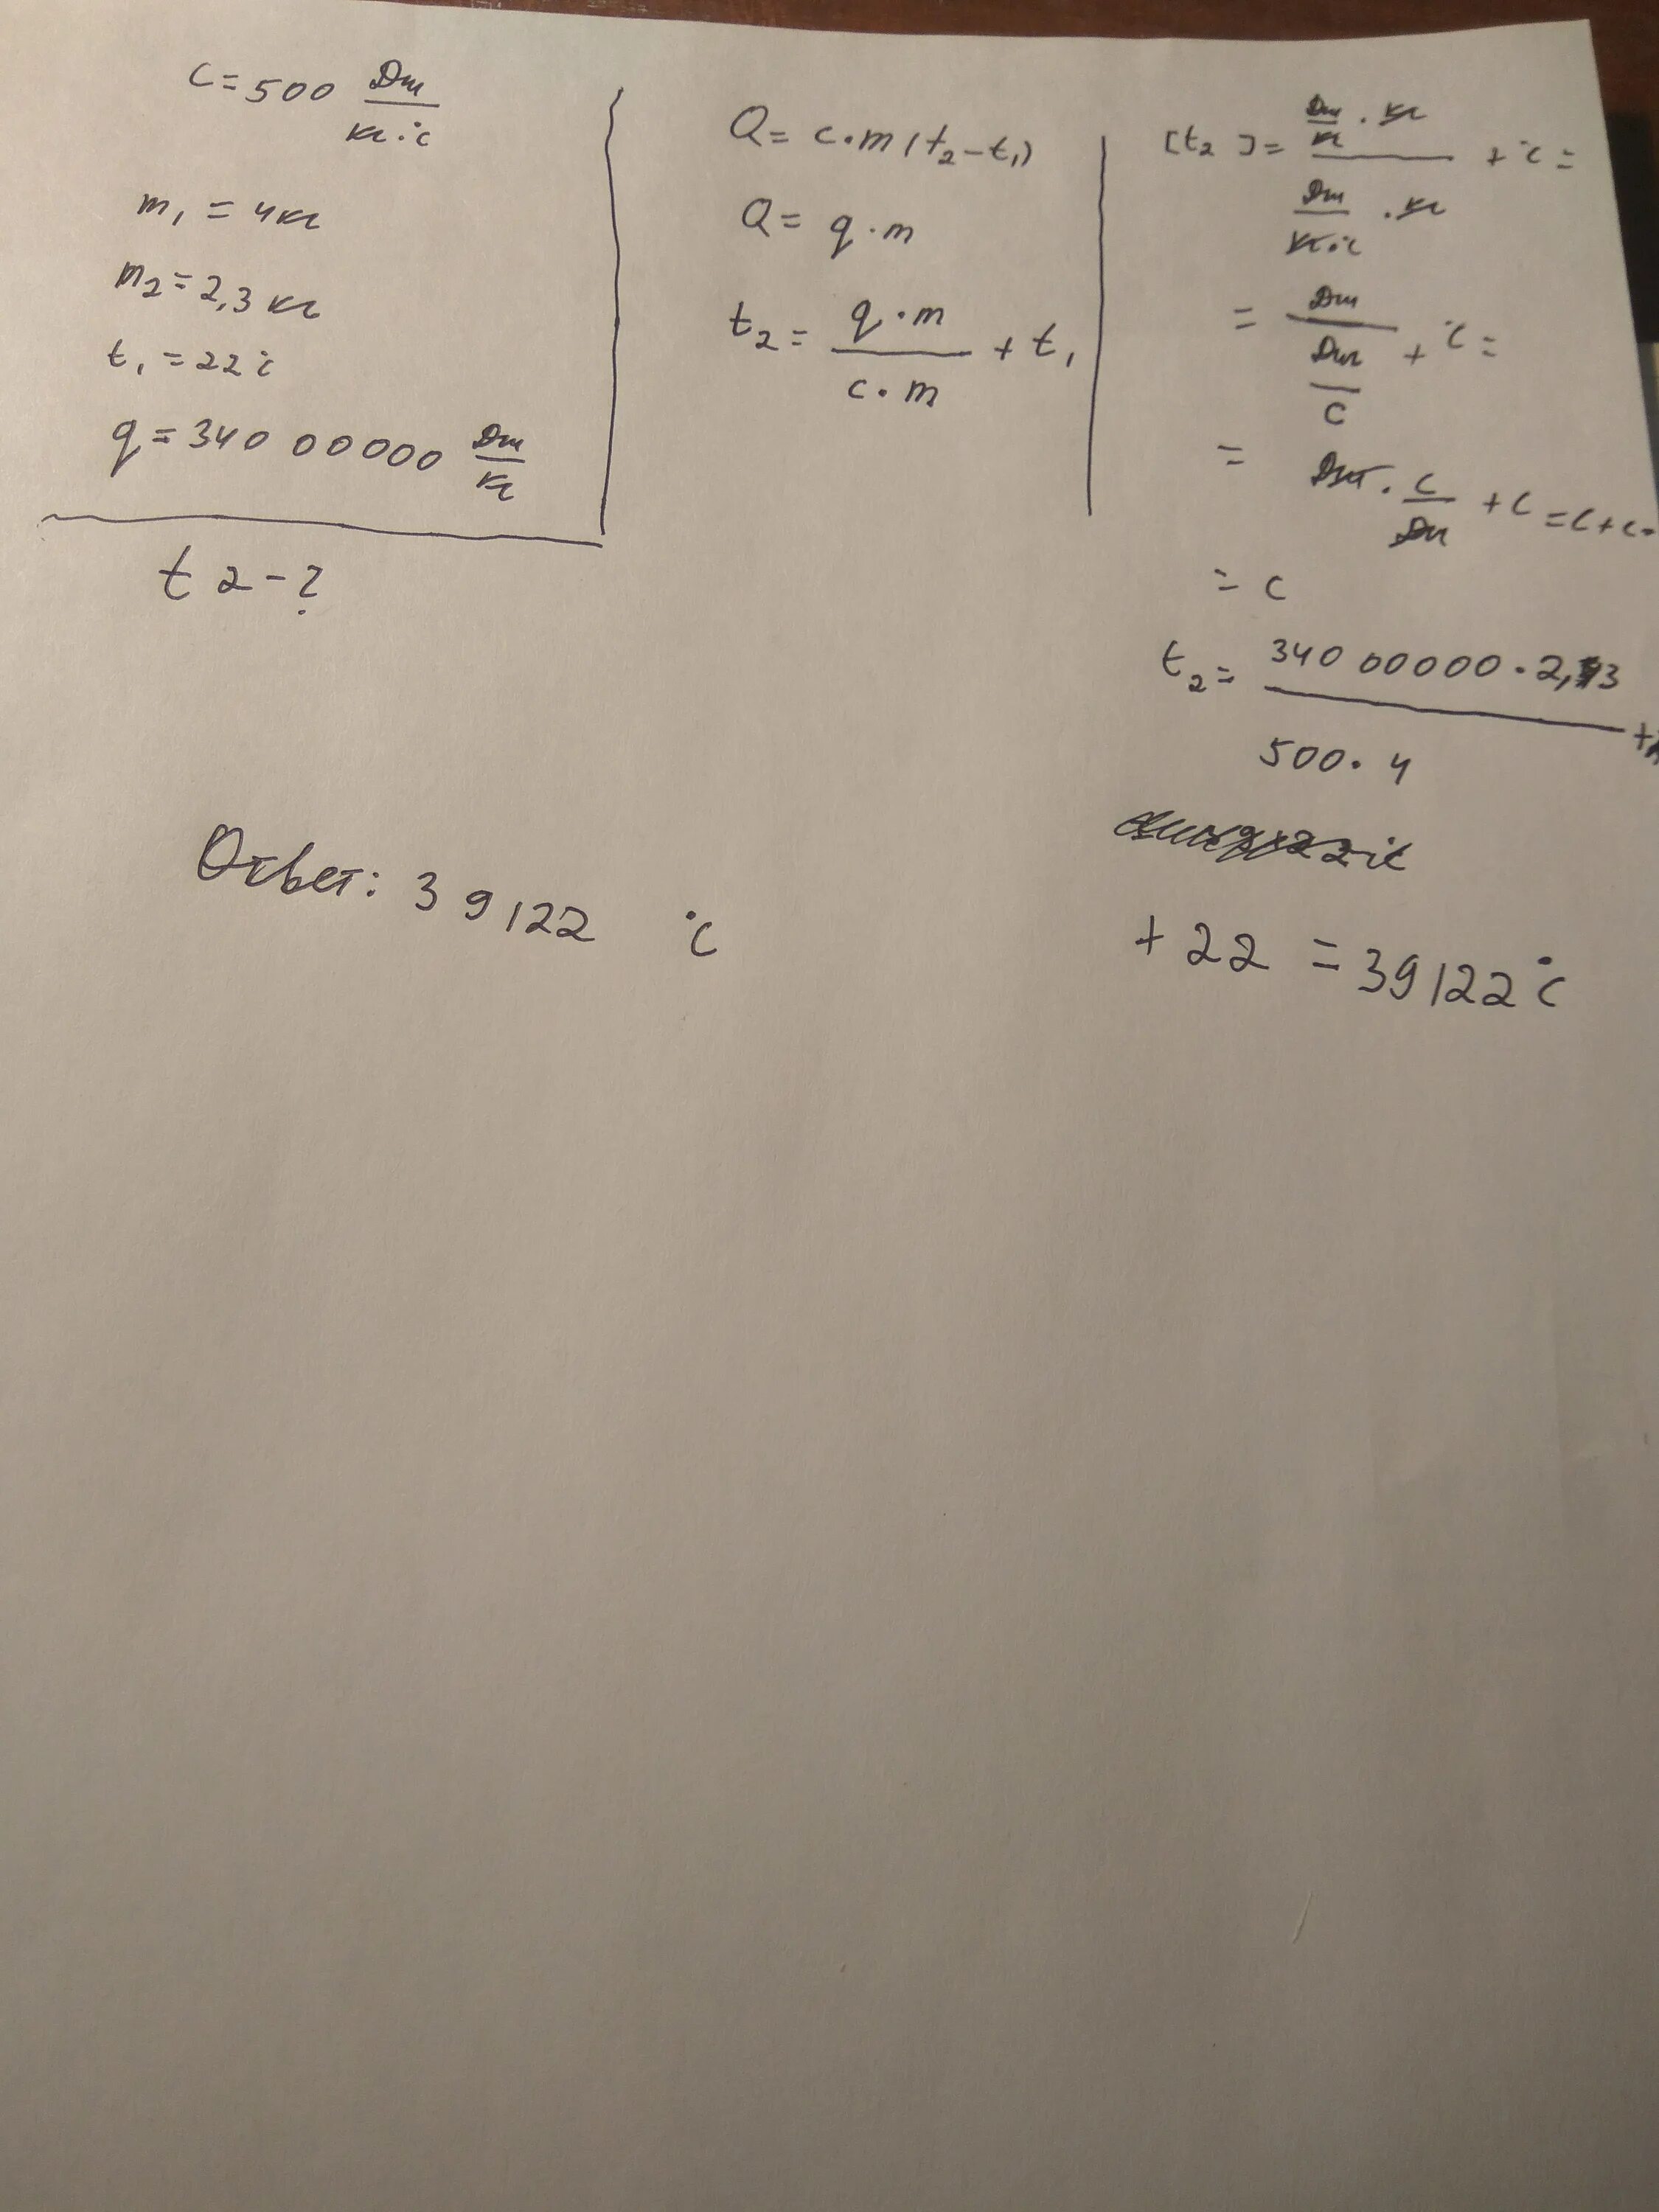 c = 500 Дж/кг·°c
m₁ = 4кг
m₂ = 2,3 кг
t₁ = 22°c
q = 340 00000 Дж/кг
t 2 - ?
Q = c·m(t₂-t₁)
Q = q·m
t₂ = q·m/c·m + t₁
[t₂] = Дж/кг · кг / Дж/кг·°c · кг + °c =
= Дж / Дж/c + °c =
= Дж · c/Дж + c = c + c =
= c
t₂ = 340 00000 · 2,3 / 500 · 4 +
+ 22 = 39122°c
Ответ: 39122 °c